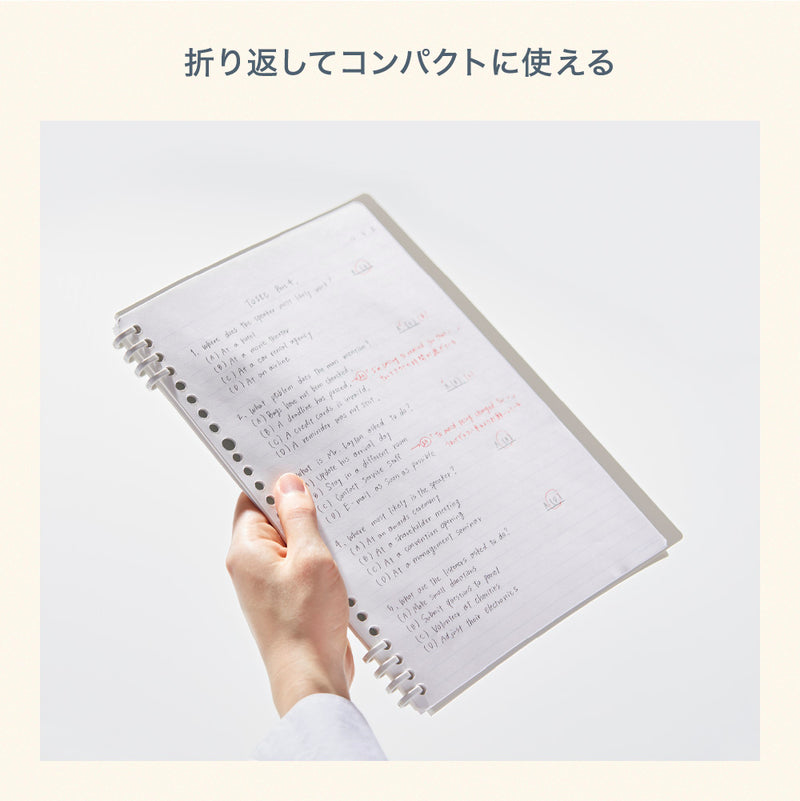 折り返してコンパクトに使える
TOEIC Part 4.
1. Where does the speaker most likely work?
(A) At a hotel
(B) At a movie theater
(C) At a car rental agency
(D) At an airline
2. What problem does the man mention?
(A) Bags have not been checked.
(B) A deadline has passed.
(C) A credit cards is invalid.
(D) A reminder was not sent.
What is Ms. asked to do?
Update his arrival day
(B) Stay in a different room
(C) Contact service staff
(D) E-mail as soon as possible
4. Where most likely is the speaker?
(A) At an awards ceremony
(B) At a shareholder meeting
(C) At a convention opening
(D) At a management seminar
5. What are the listeners asked to do?
(A) Make small donations
(B) Submit questions to panel
(C) Volunteer at charities
(D) Adjust their electronics